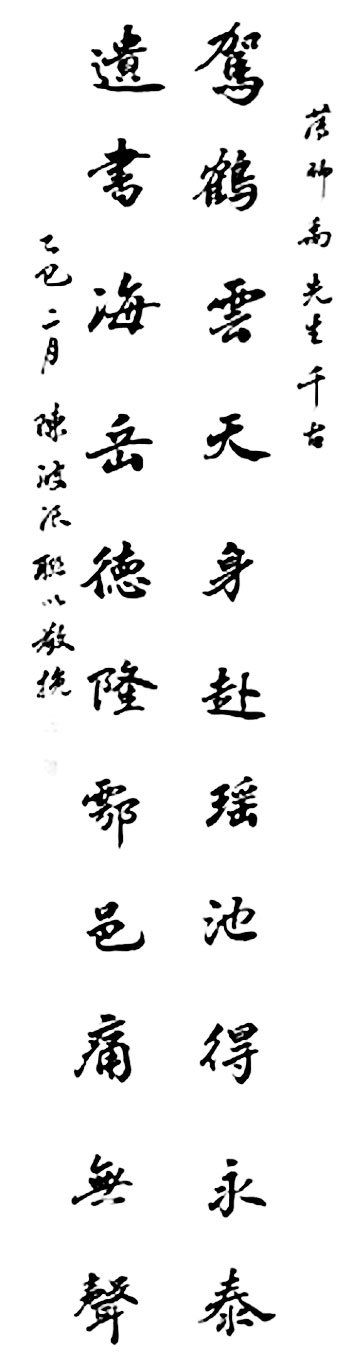 先生千古
駕鶴雲天身赴瑶池得永泰
遺書海岳德隆鄠邑痛無聲
乙巳二月 陳波聯以敬挽